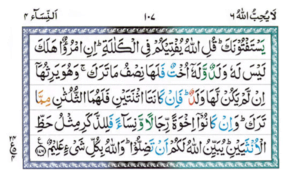 لَا يُحِبُّ اللهُ ٦ ١٠٧ اَلنِّسَآء ٤
يَسْتَفْتُوْنَكَ ؕ قُلِ اللهُ يُفْتِيْكُمْ فِي الْكَلٰلَةِ ؕ اِنِ امْرُؤٌا هَلَكَ
لَيْسَ لَهٗ وَلَدٌ وَّلَهٗۤ اُخْتٌ فَلَهَا نِصْفُ مَا تَرَكَ ۚ وَهُوَ يَرِثُهَاۤ
اِنْ لَّمْ يَكُنْ لَّهَا وَلَدٌ ؕ فَاِنْ كَانَتَا اثْنَتَيْنِ فَلَهُمَا الثُّلُثٰنِ مِمَّا
تَرَكَ ؕ وَاِنْ كَانُوْۤا اِخْوَةً رِّجَالًا وَّنِسَآءً فَلِلذَّكَرِ مِثْلُ حَظِّ
الْاُنْثَيَيْنِ ؕ يُبَيِّنُ اللهُ لَكُمْ اَنْ تَضِلُّوْا ؕ وَاللهُ بِكُلِّ شَيْءٍ عَلِيْمٌ